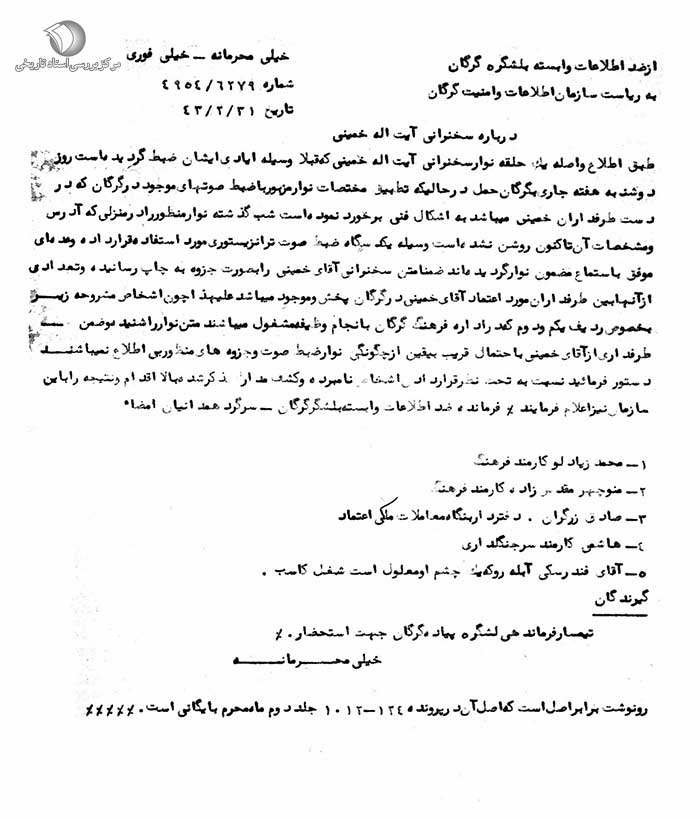 مرکز بررسی اسناد تاریخی
خیلی محرمانه – خیلی فوری
شماره ۴۹۵۴/۶۲۷۹
تاریخ ۴۳/۲/۳۱
از ضد اطلاعات وابسته بلشگره گرگان
به ریاست سازمان اطلاعات وامنیت گرگان
درباره سخنرانی آیت اله خمینی
طبق اطلاع واصله یک حلقه نوار سخنرانی آیت اله خمینی که قبلا وسیله ایادی ایشان ضبط گردیده است روز
دوشنبه هفته جاری بگرگان حمل در حالیکه تطبیق مختصات نوار مزبور با ضبط صوتهای موجود در گرگان که در
دست طرفداران خمینی میباشد به اشکال فنی برخورد نموده است شب گذشته نوار منظور را در منزلی که آدرس
ومشخصات آن تاکنون روشن نشده است وسیله یکدستگاه ضبط صوت ترانزیستوری مورد استفاده قرار داده وعده ای
موفق باستماع مضمون نوار گردیده اند ضمنا متن سخنرانی آقای خمینی را بصورت جزوه به چاپ رسانیده وتعدادی
از آنها بین طرفداران مورد اعتماد آقای خمینی در گرگان پخش وموجود میباشد علیهذا چون اشخاص مشروحه زیر
بخصوص ردیف یکم ودوم که در اداره فرهنگ گرگان بانجام وظیفه مشغول میباشند متن نوار را شنیده وضمن
طرفداری از آقای خمینی با حتمال قریب بیقین از چگونگی نوار ضبط صوت وجزوه های منظور بی اطلاع نمیباشند
دستور فرمائید نسبت به تحت نظر قرار دادن اشخاص نامبرده وکشف مدارک ذکر شده بالا اقدام ونتیجه را باین
سازمان نیز اعلام فرمایند ٪ فرمانده ضد اطلاعات وابسته بلشگر گرگان – سرگرد همدانیان امضاء
۱– محمد زیادلو کارمند فرهنگ
۲– منوچهر مقدس زاده کارمند فرهنگ
۳– صادق زرگران . دفتردار بنگاه معاملات ملکی اعتماد
۴– هاشمی کارمند سرجنگلداری
۵– آقای فندرسکی آبله رو که یک چشم او معلول است شغل کاسب .
گیرندگان
تیمسار فرماندهی لشگره پیاده گرگان جهت استحضار . ٪
خیلی محرمانه
رونوشت برابر اصل است که اصل آن در پرونده ۱۲۴–۱۰۱۲ جلد دوم ماه محرم بایگانی است . ٪٪٪٪٪